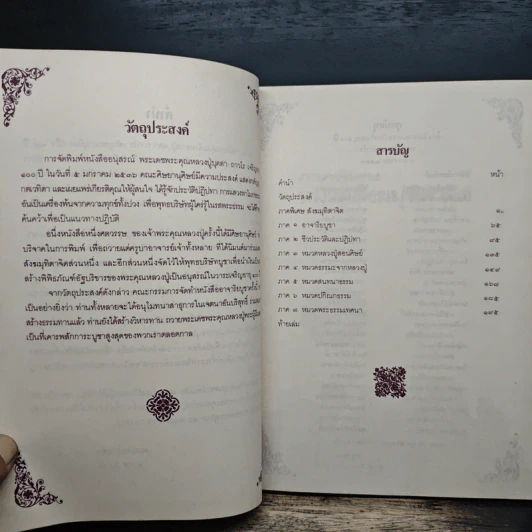 วัตถุประสงค์
การจัดพิมพ์หนังสืออนุสรณ์ พระเดชพระคุณหลวงปู่บุดดา ถาวโร เจริญ
๑๐๐ ปี ในวันที่ ๕ มกราคม ๒๕๓๖ คณะศิษยานุศิษย์มีความประสงค์
กตเวทิตา และเผยแพร่เกียรติคุณให้ผู้สนใจ ได้รู้จักประวัติปฏิปทา
อันเป็นเครื่องพ้นจากความทุกข์ทั้งปวง เพื่อพุทธบริษัทผู้ใคร่รู้ในรสพระธรรม
ค้นคว้าเพื่อเป็นแนวทางปฏิบัติ
อนึ่งหนังสือหนึ่งศตวรรษ ของเจ้าพระคุณหลวงปู่ครั้งนี้ได้มีศิษยานุศิษย์
บริจาคในการพิมพ์ เพื่อถวายแด่ครูบาอาจารย์เจ้าทั้งหลาย ที่ได้นิมนต์
สังฆมุทิตาจิตส่วนหนึ่ง และอีกส่วนหนึ่งจัดไว้ให้พุทธบริษัทบูชาเพื่อนำเงิน
สร้างพิพิธภัณฑ์อัฐบริขารของพระคุณหลวงปู่เป็นอนุสรณ์ในวาระเจริญอายุ
จากวัตถุประสงค์ดังกล่าว คณะกรรมการจัดทำหนังสืออาจาริยบูชา
เป็นอย่างยิ่งว่า ท่านทั้งหลายจะได้อนุโมทนาสาธุการในเจตนาอันบริสุทธิ์
สร้างธรรมทานแล้ว ท่านยังได้สร้างวิหารทาน ถวายพระเดชพระคุณหลวงปู่
เป็นที่เคารพสักการะบูชาสูงสุดของพวกเราตลอดกาล
สารบัญ
หน้า
คำนำ
วัตถุประสงค์
ภาคพิเศษ สังฆมุทิตาจิต
ภาค ๑ อาจาริยบูชา
ภาค ๒ ชีวประวัติและปฏิปทา
ภาค ๓ หมวดหลวงปู่สอนศิษย์
ภาค ๔ หมวดธรรมะจากหลวงปู่
ภาค ๕ หมวดสนทนาธรรม
ภาค ๖ หมวดปกิณกธรรม
ภาค ๗ หมวดพระธรรมเทศนา
ท้ายเล่ม